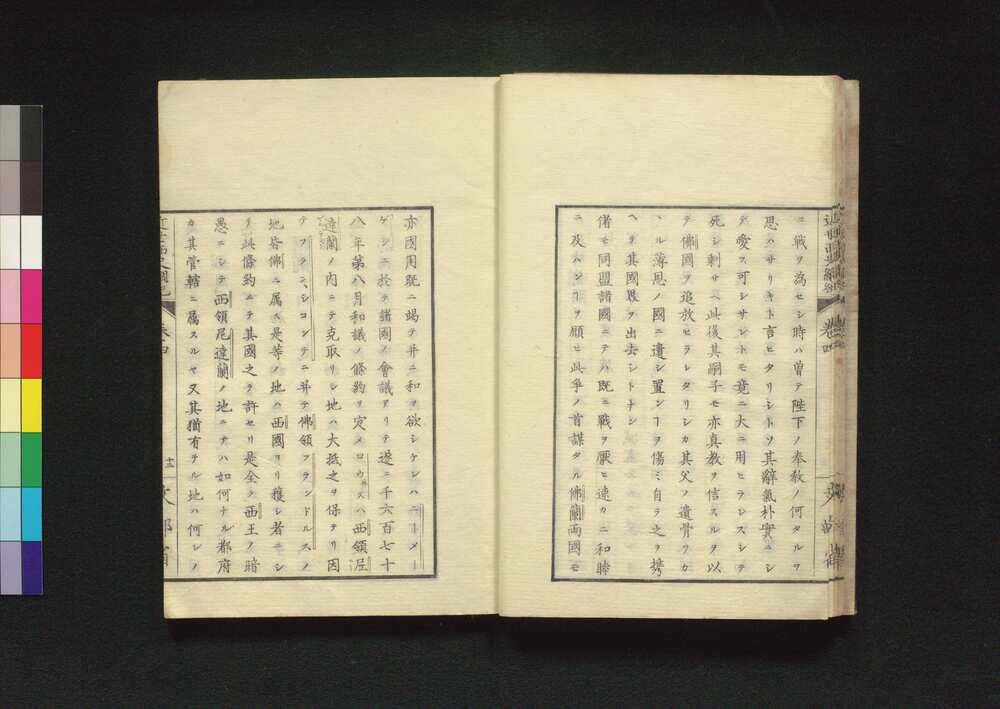 ニ戰ヲ為セシ時ハ曽テ陛下ノ奉教ノ何タルヲ
思ハサリキト言ヒタリシトソ其辭氣朴實ニシ
テ愛ス可シサレトモ竟ニ大ニ用ヒラレスシテ
死シ剰サヘ此後其嗣子モ亦真教ヲ信スルヲ以
テ佛國ヲ追放セラレタリシカ其父ノ遺骨ヲカ
ヽル薄恩ノ國ニ遺シ置ンヿヲ傷ミ自ラ之ヲ携
ヘテ其國界ヲ出去シトナン
偖モ同盟諸國ニテハ既ニ戰ヲ厭ヒ速カニ和睦
ニ及ハンヿヲ願ヒ此爭ノ首謀タル佛蘭両國モ
卷四
亦國用既ニ竭テ幷ニ和ヲ欲シケレハニーメー
ゲンニ於テ諸國ノ會議アリテ遂ニ千六百七十
八年第八月和議ノ條約ヲ定メロウ井スハ西領尼
達蘭ノ内ニテ克取リシ地ハ大抵之ヲ保テリ因
テフランシコンテニ幷テ佛領フランドルスノ
地皆佛ニ属ス是等ノ地ハ西國ヨリ獲シ者ニシ
テ此條約ニテ其國之ヲ許セリ是全ク西王ノ暗
愚ニシテ西領尼達蘭ノ地ニテハ如何ナル都府
カ其管轄ニ属スルヤ又其猶有テル地ハ何レノ
卷四
十三
文部省